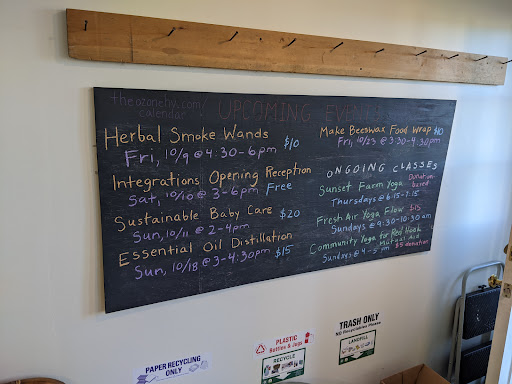 theozonehv.com/
calendar
UPCOMING EVENTS
Herbal Smoke Wands
Fri, 10/9 @ 4:30-6pm $10
Integrations Opening Reception
Sat, 10/10 @ 3-6pm Free
Sustainable Baby Care $20
Sun, 10/11 @ 2-4pm
Essential Oil Distillation
Sun, 10/18 @ 3-4:30pm $15
Make Beeswax Food Wrap $10
Fri, 10/23 @ 3:30-4:30pm
ONGOING CLASSES
Sunset Farm Yoga Donation-
based
Thursdays @ 6:15-7:15
Fresh Air Yoga Flow $15
Sundays @ 9:30-10:30 am
Community Yoga for Red Hook
Mutual Aid
Sundays @ 4-5 pm $5 donation
PAPER RECYCLING
ONLY
PLASTIC
Bottles & Jugs
RECYCLE
TRASH ONLY
NO Recyclables Please
LANDFILL